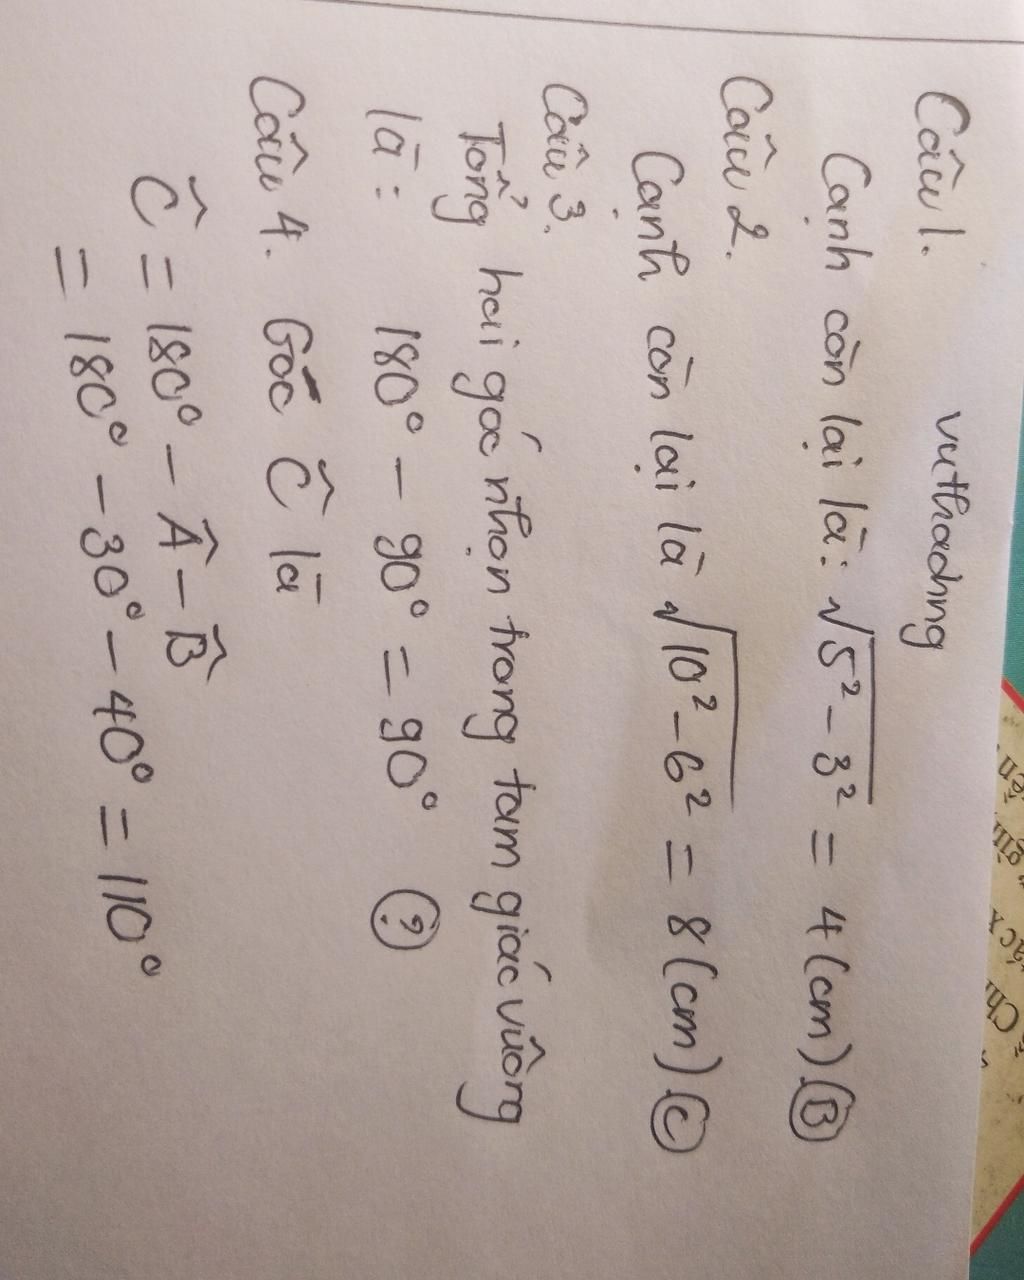 vuthadng
Câu 1.
Cạnh còn lại là: √5² - 3² = 4 (cm) B
Câu 2.
Cạnh còn lại là √10² - 6² = 8 (cm) C
Câu 3.
Tổng hai góc nhọn trong tam giác vuông
là: 180° - 90° = 90° ?
Câu 4. Góc Ĉ là
Ĉ = 180° - Â - B̂
= 180° - 30° - 40° = 110°